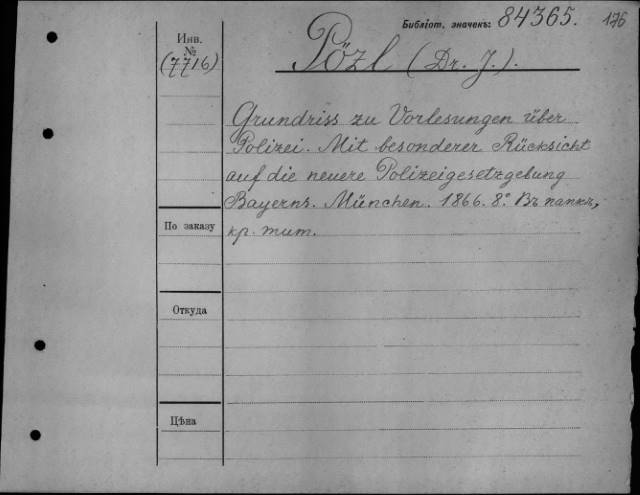 Библіот. значекъ: 84365. 176
Инв.
№
(7716)
Pözl (Dr. J.).
Grundriss zu Vorlesungen über
Polizei. Mit besonderer Rücksicht
auf die neuere Polizeigesetzgebung
Bayerns. München. 1866. 8º. Въ папкѣ,
кр. тит.
По заказу
Откуда
Цѣна